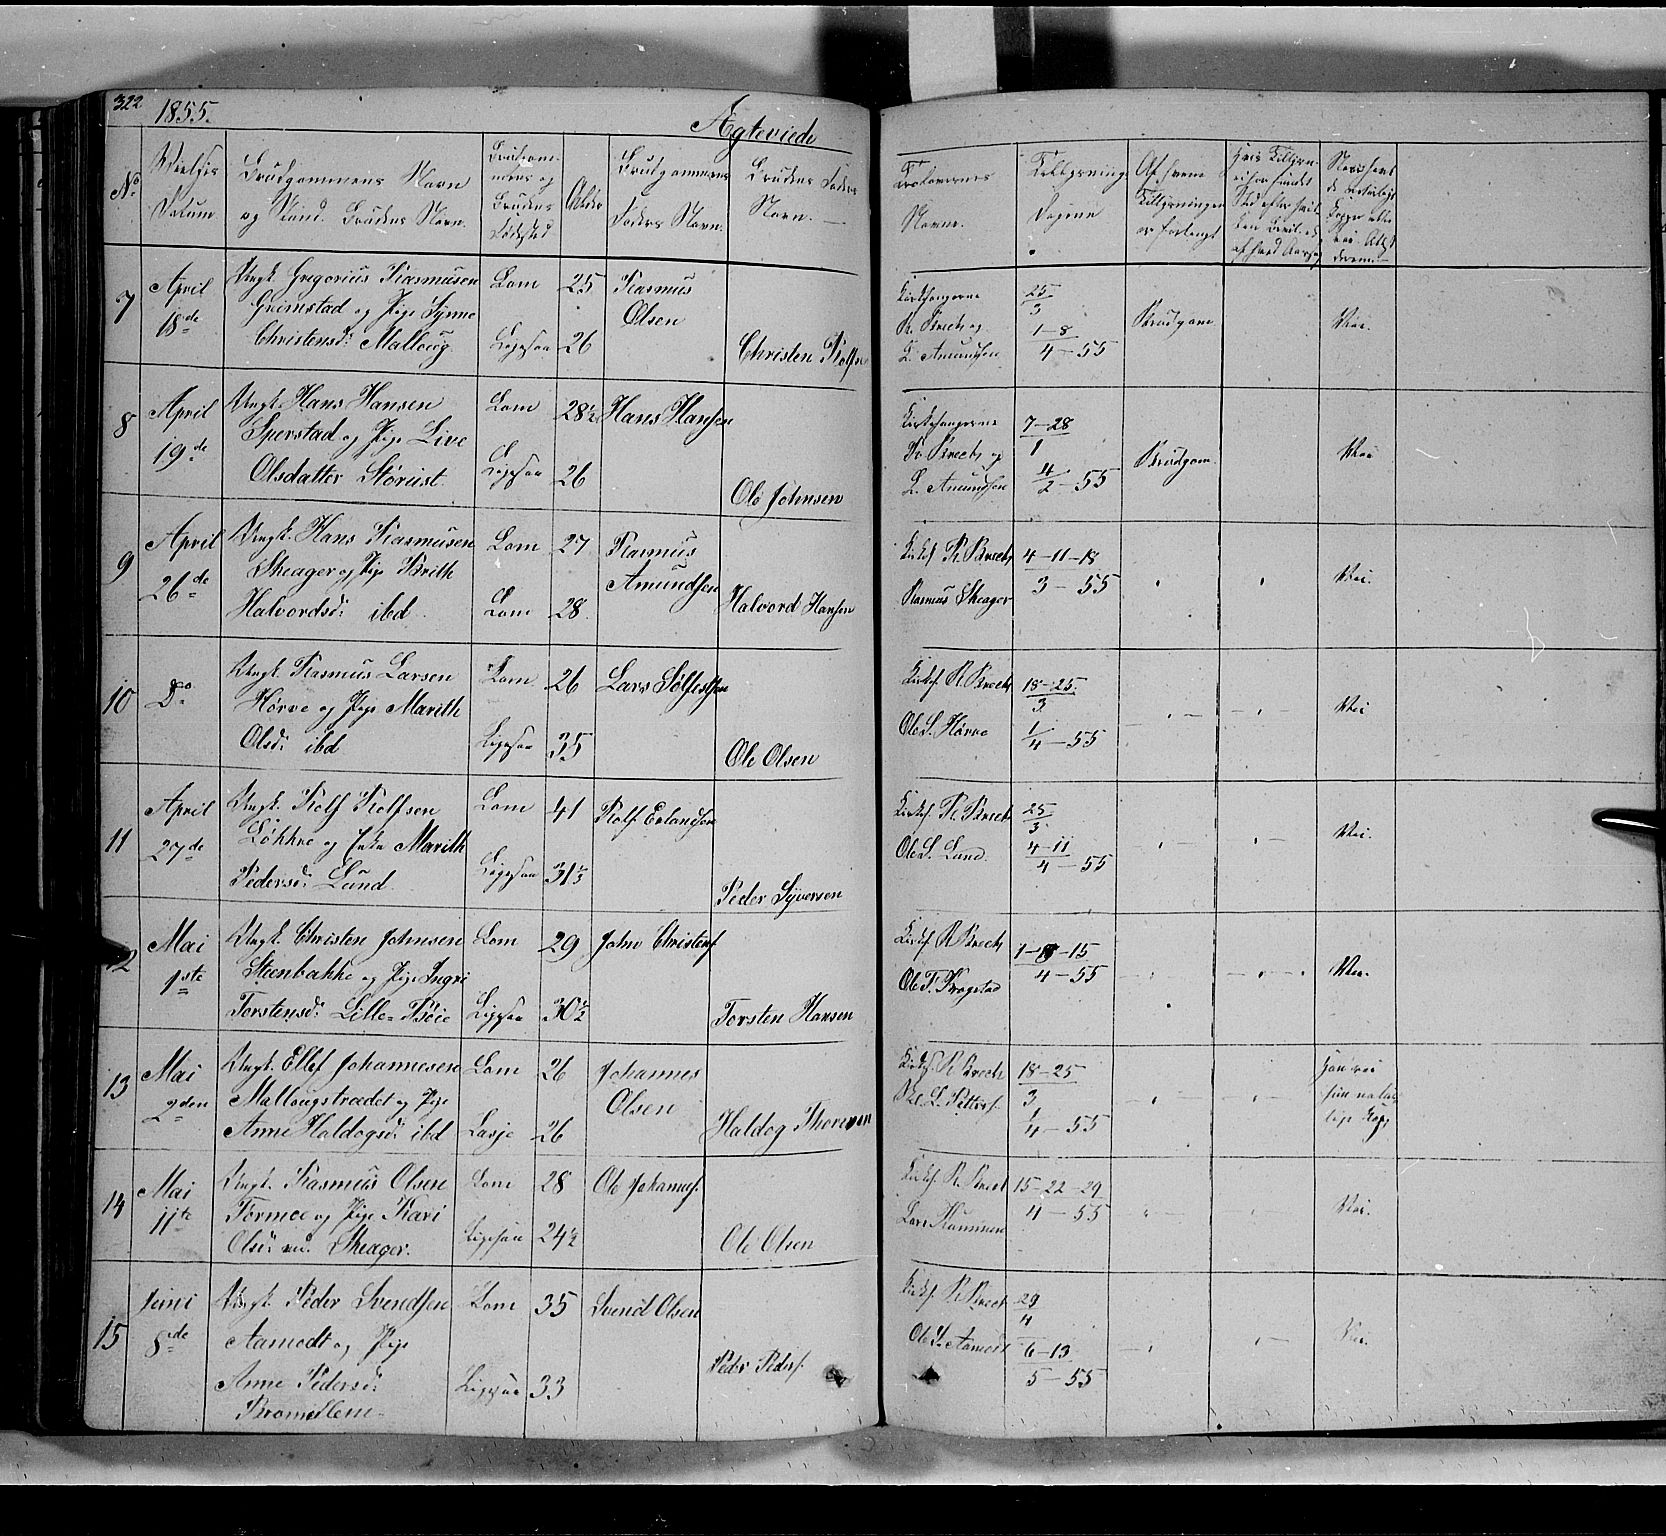 322 1855. Ægteviede
No.
Vielses Datum
Brudgommens Navn og Stand. Brudens Navn.
Brudgommens og Brudens Fødested
Alder
Brudgommens Faders Navn.
Brudens Faders Navn.
Forlovernes Navne.
Tillysnings Dagene
Af hvem Tillysningen er forlangt
7 April 18de
Ungk. Gregorius Rasmusen
Grimstad og Pige Synne
Christensd: Malloug
Lom 25
Ligesaa 26
Rasmus Olsen
Christen Rolfsen
Kirkesangerne
R. Brech og
L. Amundsen
25/3 1-8/4-55
Brudgom
Vac.
8 April 19de
Ungk. Hans Hansen
Sperstad og Pige Live
Olsdatter Störüst
Lom 28½
Ligesaa 26
Hans Hansen
Ole Johnsen
Kirkesangerne
R. Brech og
L. Amundsen
7-28/1 4/2-55
Brudgom.
Vac
9 April 26de
Ungk. Hans Rasmusen
Skeager og Pige Brith
Halvordsd: ibd.
Lom 27
Lom 28.
Rasmus Amundsen
Halvord Hansen
Kirkes. R. Brech
Rasmus Skeager
4-11-18/3-55
Vac.
10 Do
Ungk. Rasmus Larsen
Hörve og Pige Marith
Olsd: ibd
Lom 26
Ligesaa 35
Lars Sölfestsen
Ole Olsen
Kirkes. R. Brech
Ole S. Hörve
18-25/3 1/4-55
Vac
11 April 27de
Ungk. Rolf Rolfsen
Løkkre og Enke Marith
Pedersd: Lund
Lom 41
Ligesaa 31½
Rolf Erlandsen
Peder Syversen
Kirkes. R. Brech
Ole S. Lund.
25/3 4-11/4-55
Vac.
12 Mai 1ste
Ungk. Christen Johnsen
Steenbakke og Pige Ingri
Torstensd: Lille-Böie
Lom 29
Ligesaa 30½
John Christens.
Torsten Hansen
Kirkes. R Brech
Ole T. Brogstad
1-8-15/4-55
Vac.
13 Mai 2den
Ungk. Ellef Johannesen
Mallougstrædet og Pige
Anne Haldogsd: ibd
Lom 26
Lesje 26
Johannes Olsen
Haldog Thoresen
Kirkes. R Brech
18-25/3 1/4-55
Han vac
hun naturlige Kop.
14 Mai 11te
Ungk. Rasmus Olsen
Formoe og Pige Kari
Olsd: nd. Skeager.
Lom 28
Ligesaa 24½
Ole Johannes.
Ole Olsen
Kirkes. R. Brech
15-22-29/4-55
Vac.
15 Juni 8de
Ungk. Peder Svendsen
Aamodt og Pige
Anne Pedersd:
Bromellem.
Lom 35
Ligesaa 33
Svend Olsen
Peder Peders.
Kirkes. R. Brech
Ole S. Aamodt
29/4 6-13/5-55
Vac.